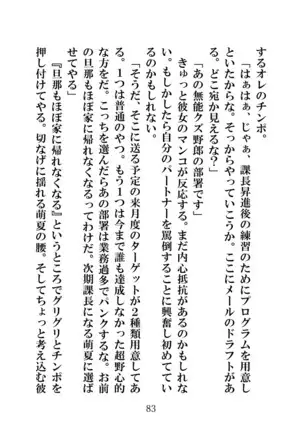 するオレのチンポ。
「はぁはぁ、じゃぁ、課長昇進後の練習のためにプログラムを用意し
といたからな。そっからやっていこうか。ここにメールのドラフトがあ
る。どこ宛か見えるな？」
「あの無能クズ野郎の部署です」
きゅっと彼女のマンコが反応する。まだ内心抵抗があるのかもしれな
い。もしかしたら自分のパートナーを罵倒することに興奮し初めてい
るのかもしれない。
「そうだ、そこに送る予定の来月度のターゲットが２種類用意してあ
る。１つは普通のやつ。もう１つは今まで誰も達成しなかった超野心的
な方をだ。こっちを選んだらあの部署は業務過多でパンクするな。お前
の旦那もほぼ家に帰れなくなるってわけだ。次期課長になる萌夏に選ば
せてやる」
『旦那もほぼ家に帰れなくなる』というところでグリグリとチンポを
押し付けてやる。切なげに揺れる萌夏の腰。そしてちょっと考え込む彼
83